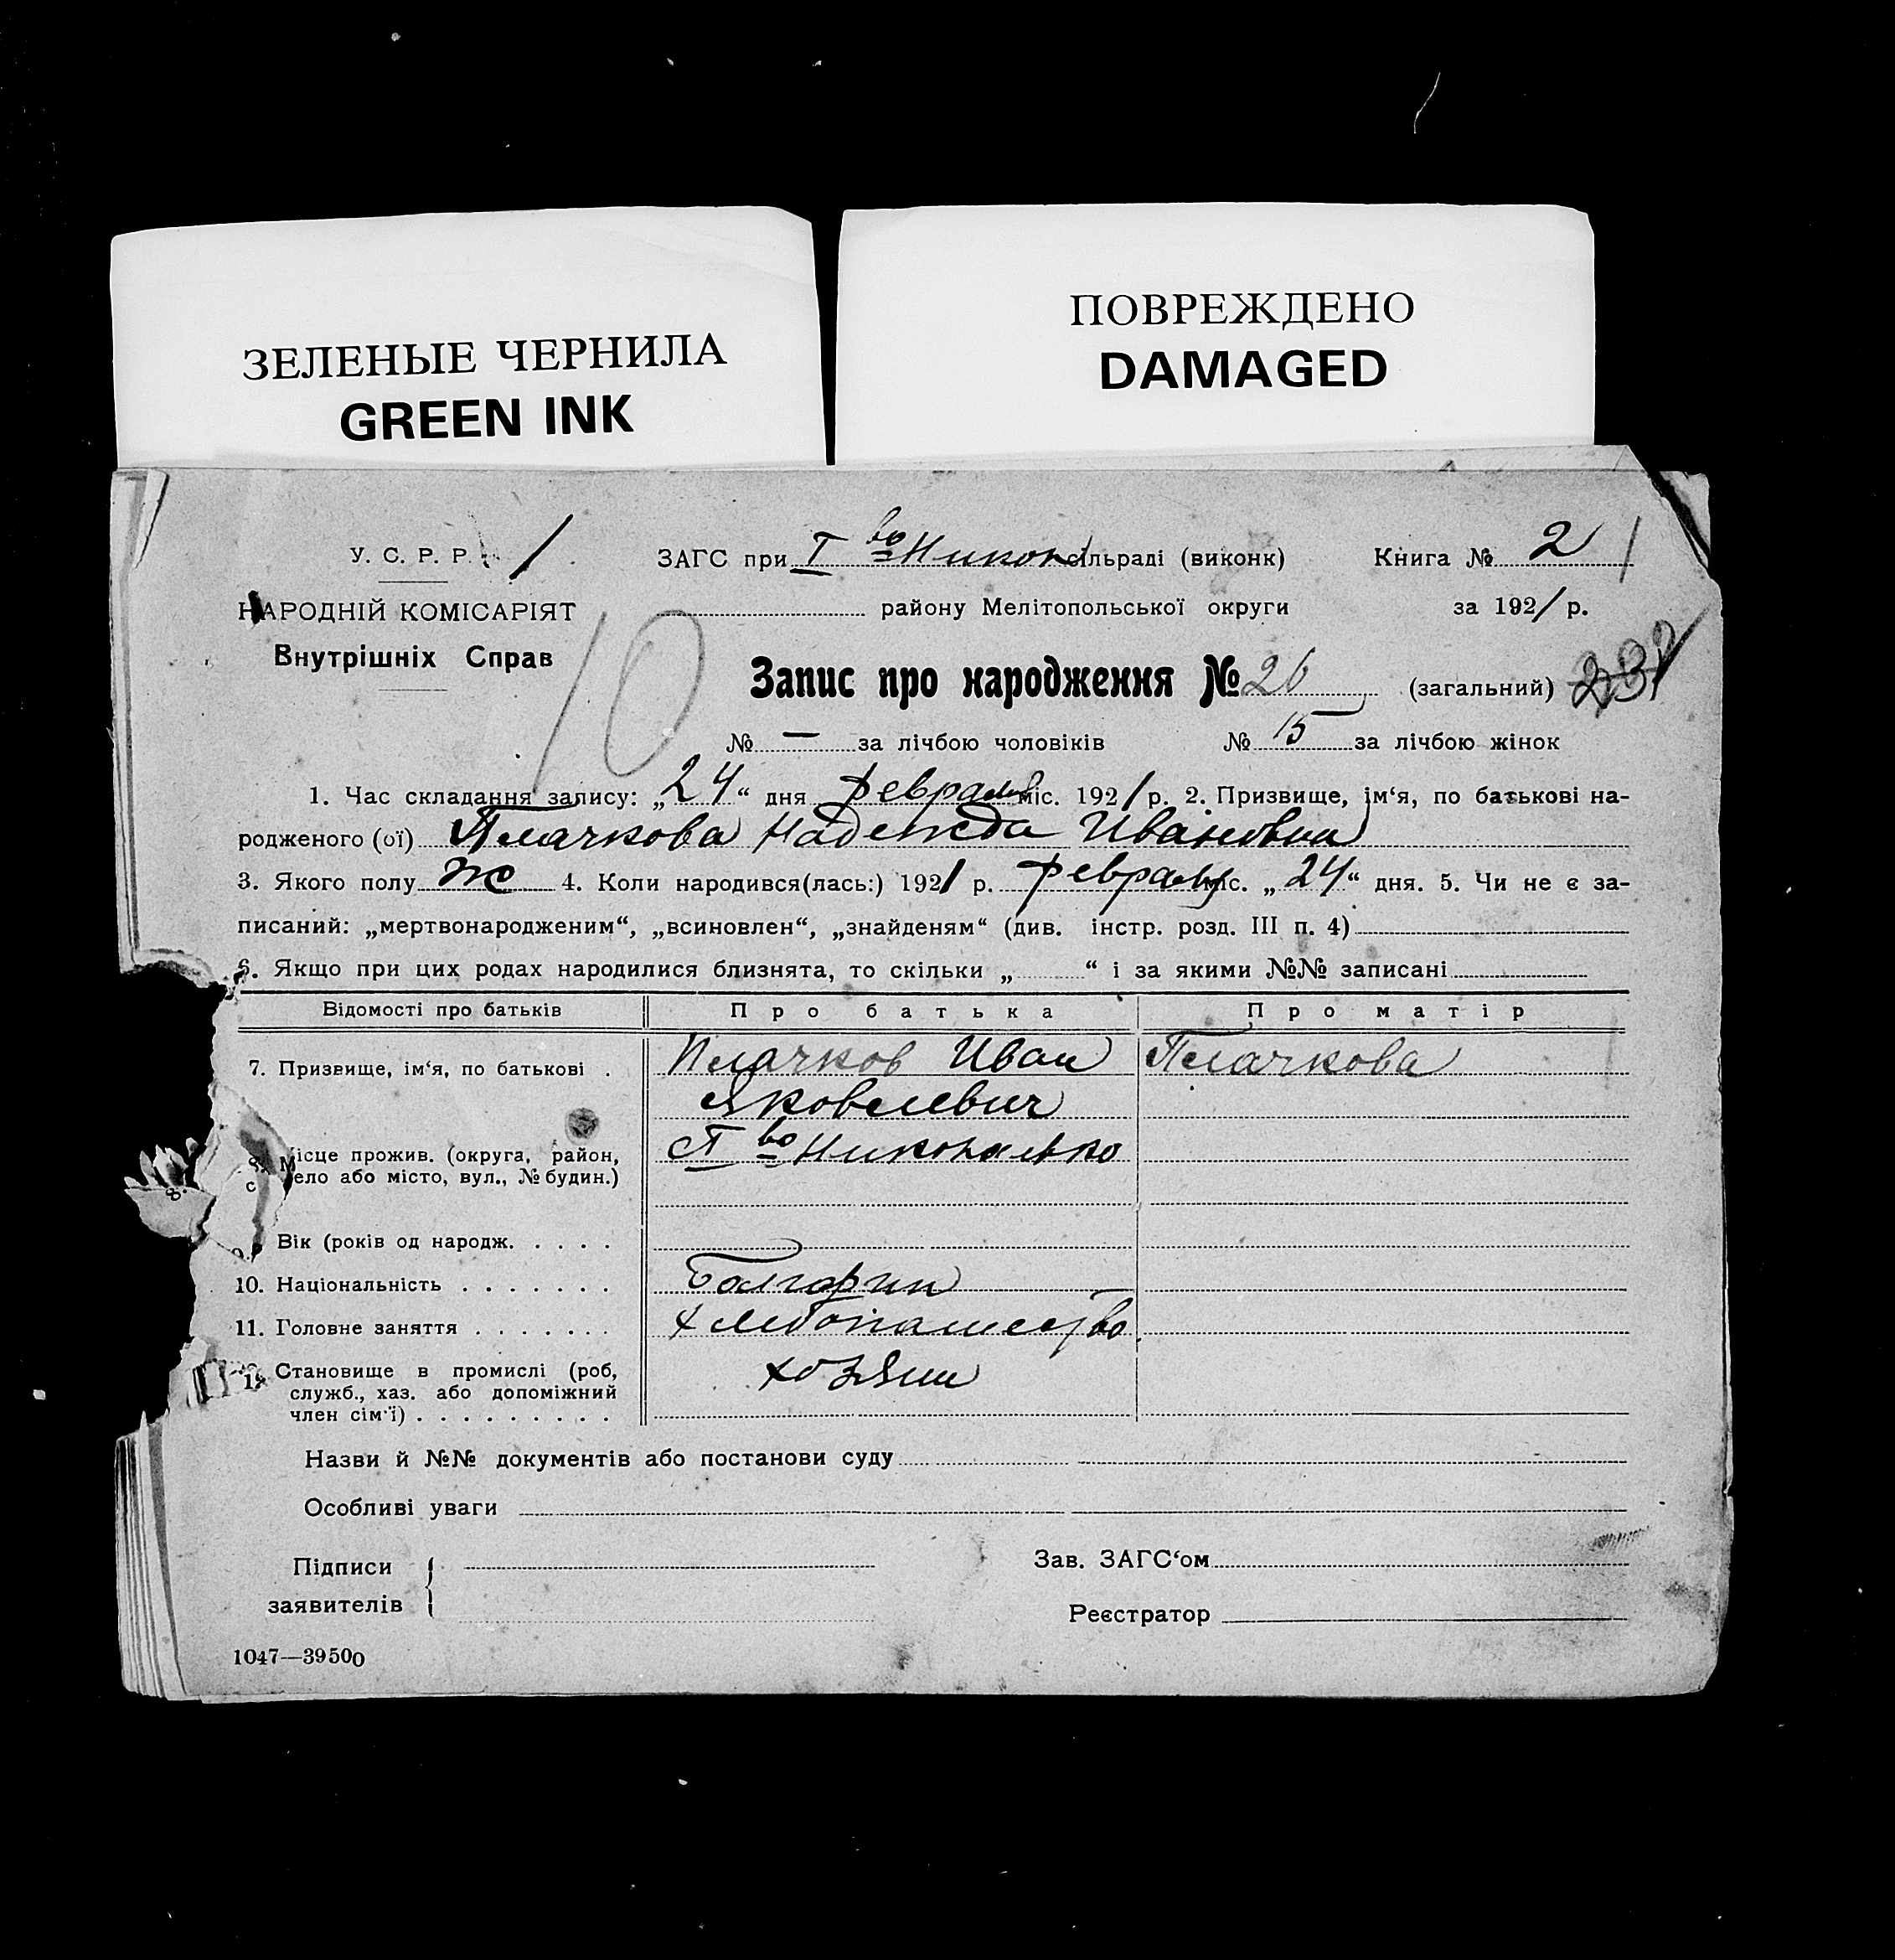 ЗЕЛЕНЫЕ ЧЕРНИЛА
GREEN INK
ПОВРЕЖДЕНО
DAMAGED
У. С. Р. Р. 1
ЗАГС при I во Никон сільраді (виконк) Книга № 2
НАРОДНІЙ КОМІСАРІЯТ
району Мелітопольської округи за 1921 р.
Внутрішніх Справ
10
Запис про народження № 26 (загальний)
№ — за лічбою чоловіків № 15 за лічбою жінок
1. Час складання запису: „24“ дня февраля міс. 1921 р. 2. Призвище, ім‘я, по батькові на-
родженого (ої) Плачкова Надежда Ивановна
3. Якого полу ж 4. Коли народився(лась:) 1921 р. февраля міс. „24“ дня. 5. Чи не є за-
писаний: „мертвонародженим“, „всиновлен“, „знайденям“ (див. інстр. розд. III п. 4)
6. Якщо при цих родах народилися близнята, то скільки „ “ і за якими №№ записані
Відомості про батьків Про батька Про матір
7. Призвище, ім‘я, по батькові . Плачков Иван Плачкова
Яковлевич
8. Місце прожив. (округа, район,
село або місто, вул., № будин.)
Вік (років од народж. . . . .
10. Національність . . . . . . . Болгарин
11. Головне заняття . . . . . . . Хлебопашество
Становище в промислі (роб,
служб., хаз. або допоміжний
член сім‘ї) . . . . . . . . .
хозяин
Назви й №№ документів або постанови суду
Особливі уваги
Підписи
заявителів
Зав. ЗАГС‘ом
Реєстратор
1047—39500